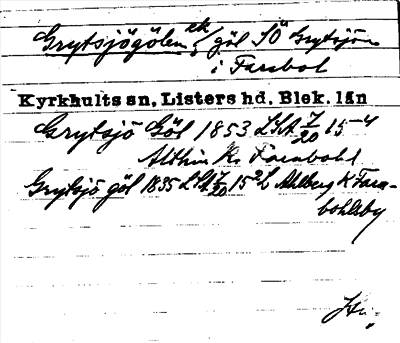 Grytsjögölen ek göl SÖ Grytsjön
i Farabol
Kyrkhults sn, Listers hd. Blek. län
Grytsjö Göl 1853 LSA 7/20 15-4
Althin K. Farabohl
Grytsjö göl 1835 LSA 7/20 15² L Ahlberg K Fara-
bohlsby